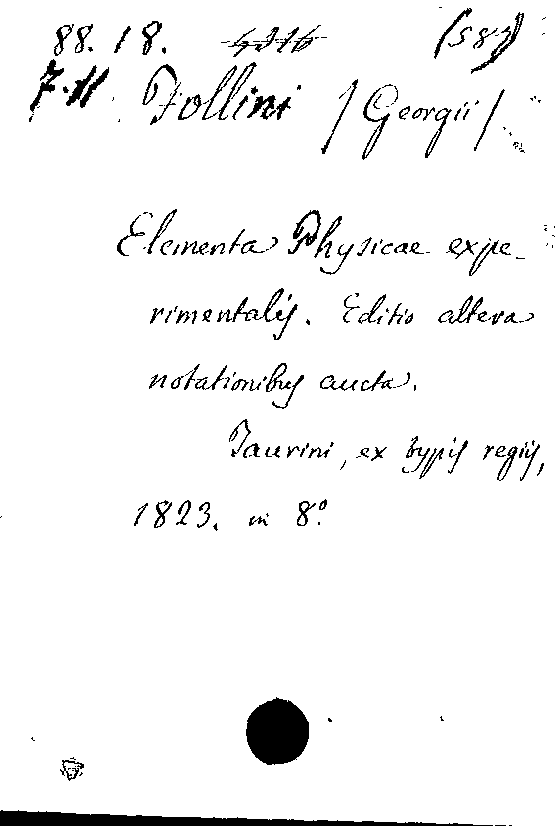 88. 18. (583)
7.11 Follini / Georgii /
Elementa Physicae expe-
rimentalis. Editio altera
notationibus aucta.
Taurini, ex typis regiis,
1823. in 8º.